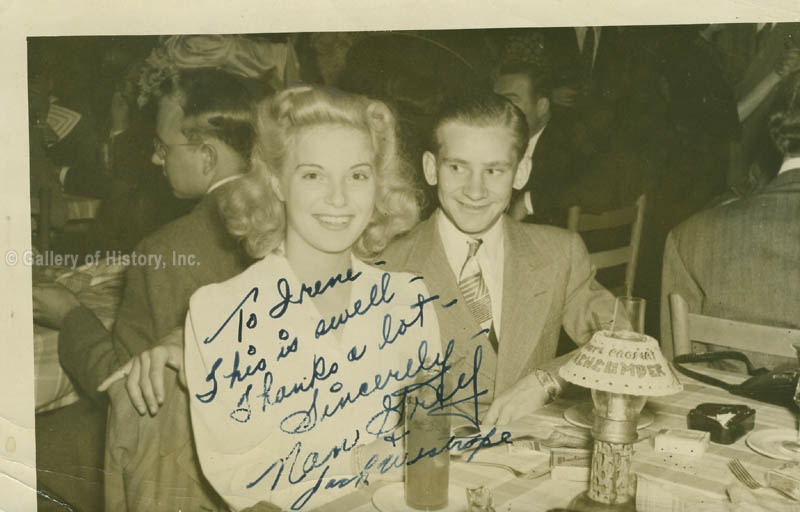 © Gallery of History, Inc.
To Irene –
This is swell –
Thanks a lot –
Sincerely –
Nan Grey
+
Jack Westrope